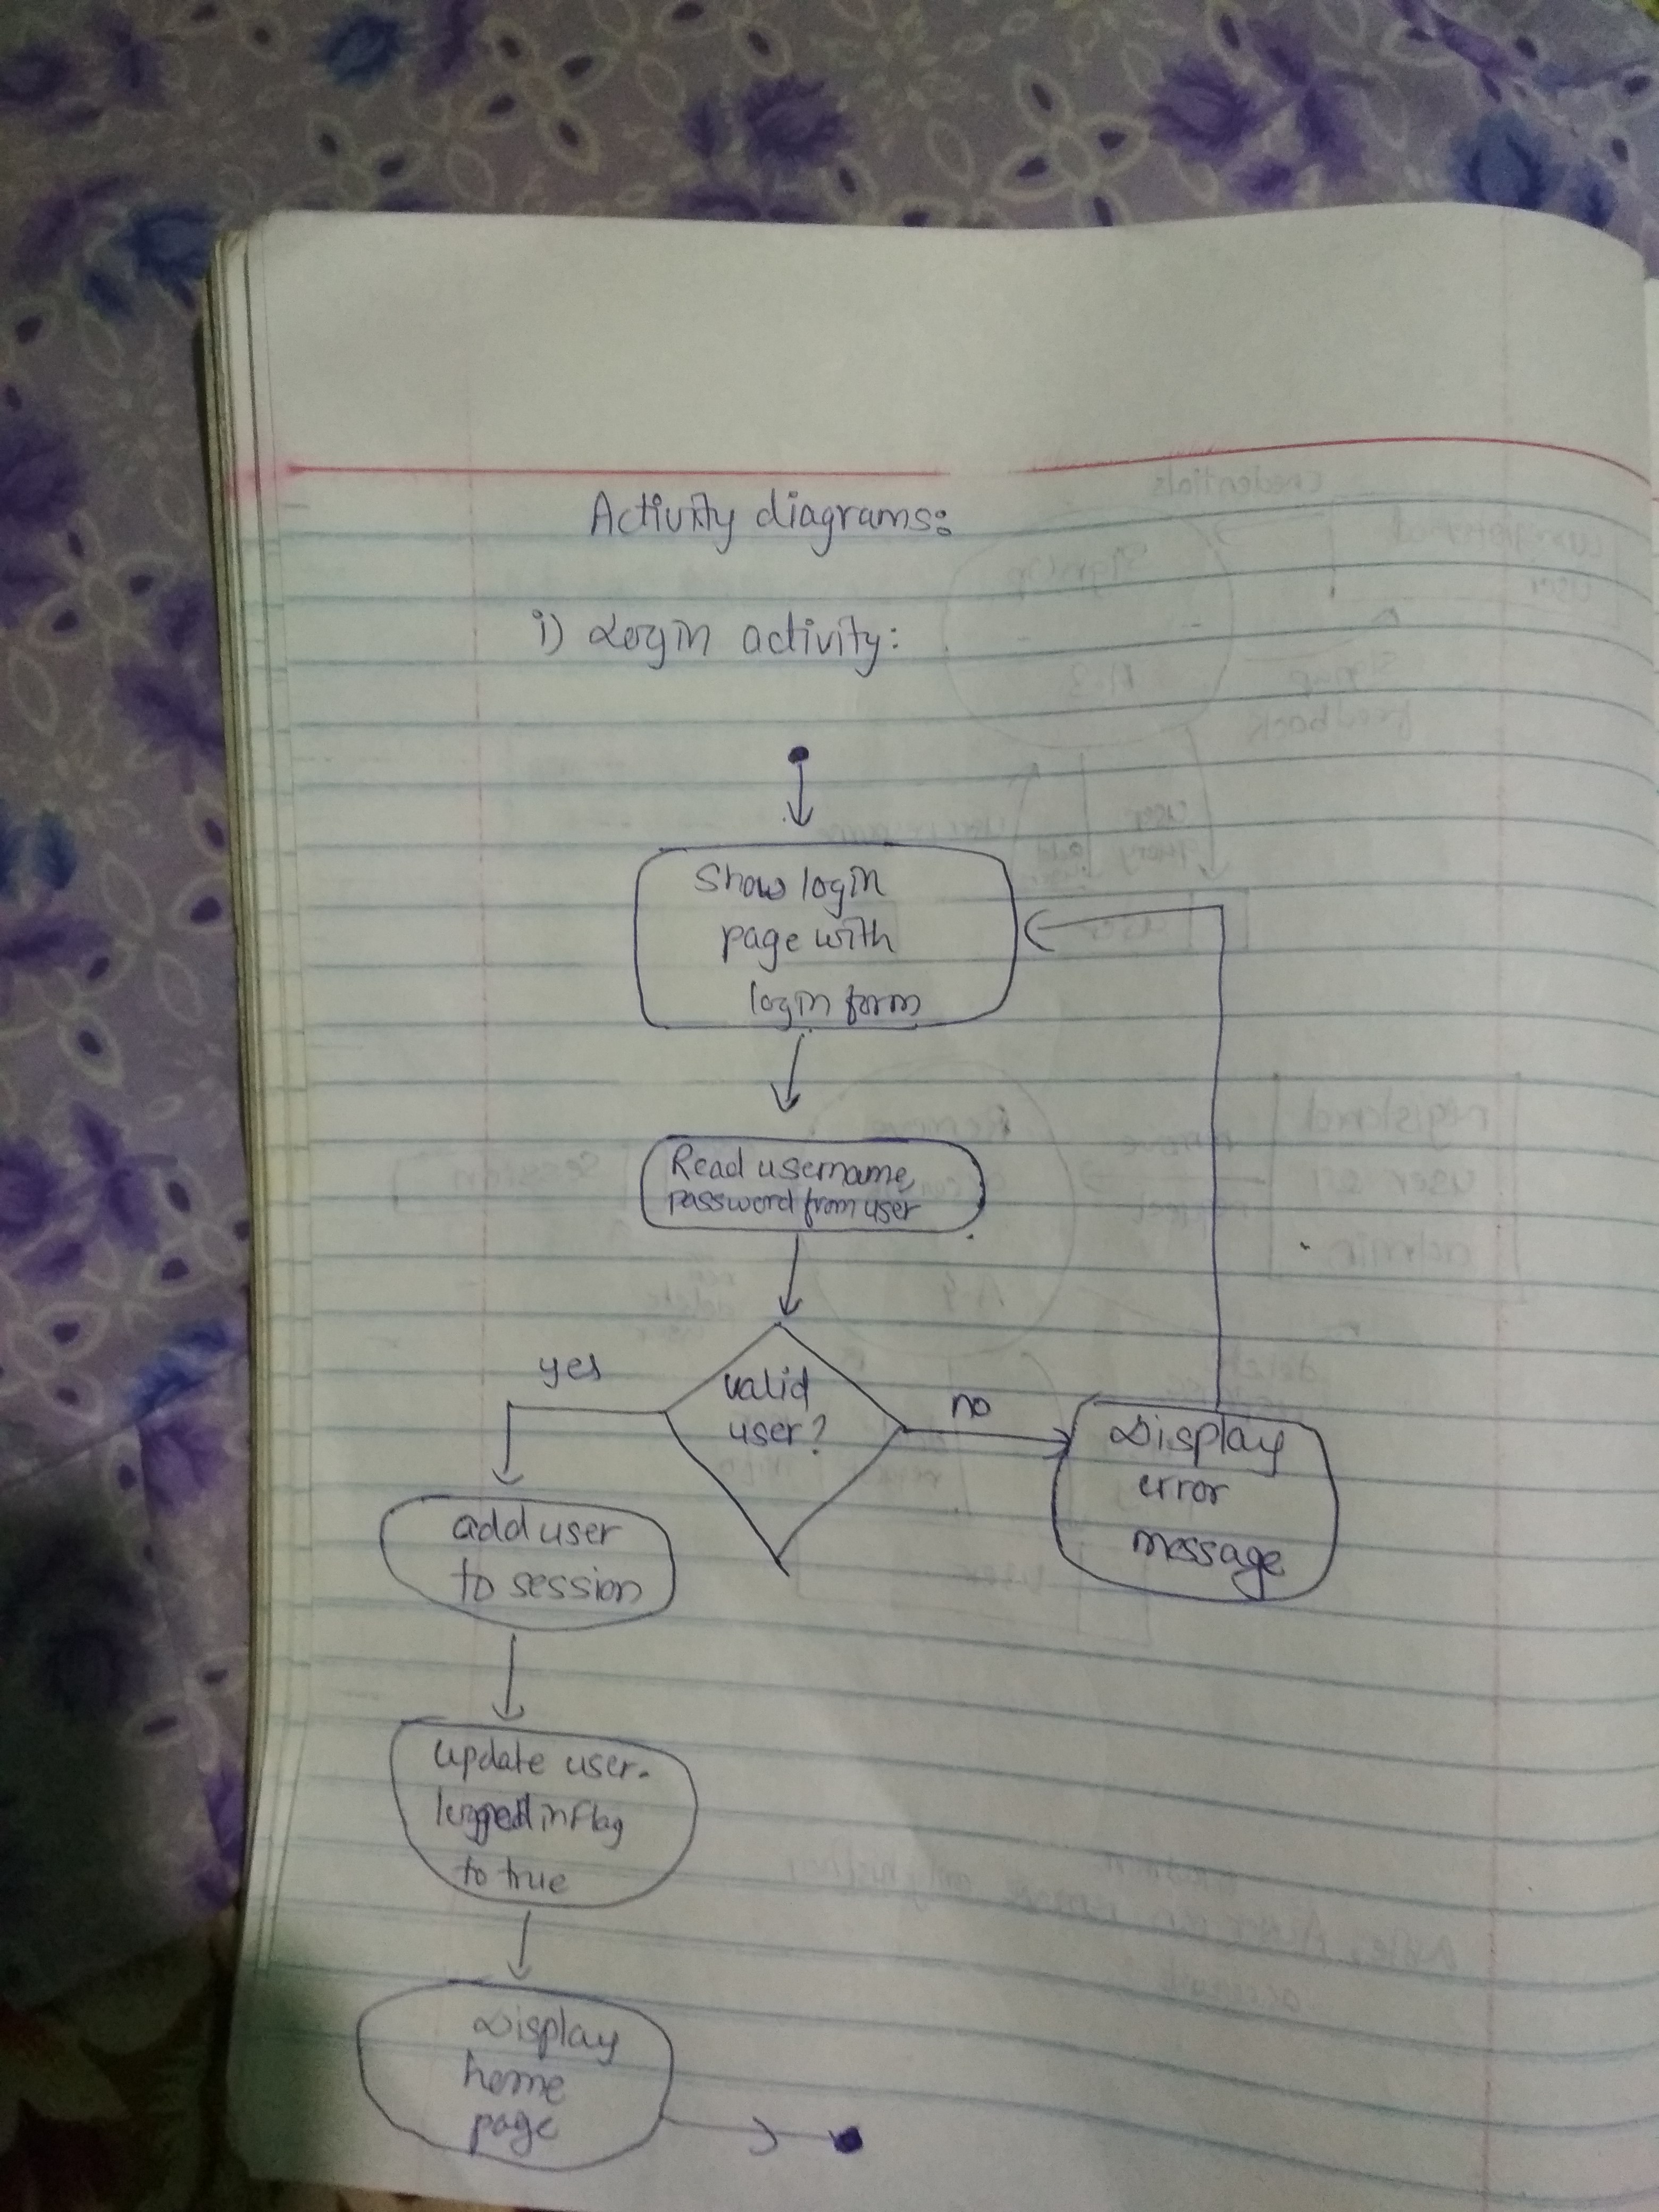 Activity diagrams:
i) Login activity:
Show login
page with
login form
Read username,
password from user
valid
user?
yes
no
Display
error
message
add user
to session
update user.
loggedinFlag
to true
Display
home
page